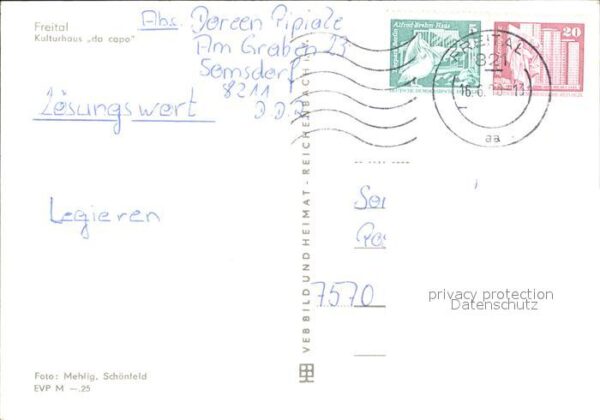 Freital
Kulturhaus „da capo"
Abs. Doreen Pipiale
Am Graben 23
Somsdorf
8211
D.D.R
Lösungswort
Legieren
7570
Alfred-Brehm-Haus
20
FREITAL
821
aa
VEB BILD UND HEIMAT · REICHENBACH
privacy protection
Datenschutz
Foto: Mehlig, Schönfeld
EVP M —.25